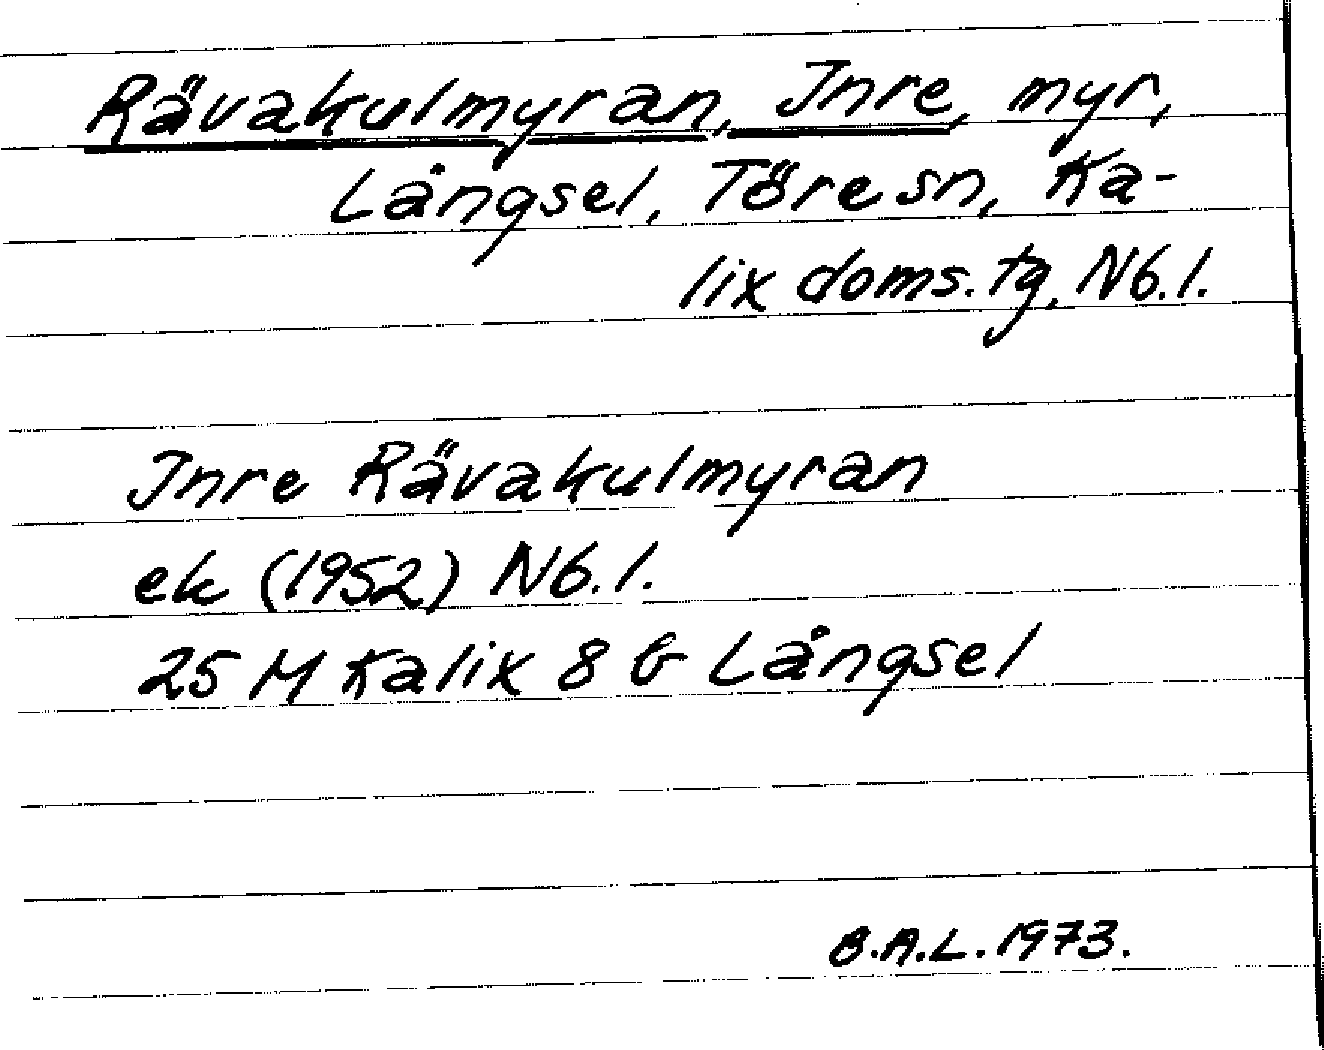 Rävakulmyran, Inre, myr,
Långsel, Töre sn, Ka-
lix doms.tg, Nb.l.
Inre Rävakulmyran
ek (1952) Nb.l.
25 M Kalix 8 b Långsel
B.A.L. 1973.